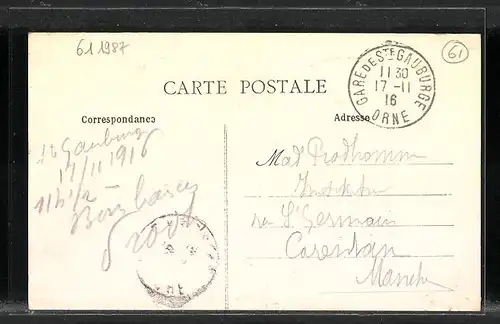 61 1987
61
CARTE POSTALE
GARE DE STE GAUBURGE
11 30
17 - 11
16
ORNE
Correspondance
Adresse
St Gauburge
17/11 1916
11h 1/2
Mad Prodhomme
Institutrice
rue St Germain
Carentan
Manche